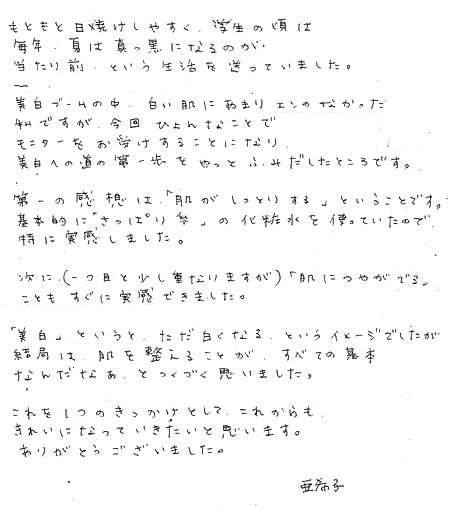 もともと日焼けしやすく、学生の頃は
毎年、夏は真っ黒になるのが
当たり前、という生活を送っていました。
〜
美白ブームの中、白い肌にあまりエンのなかった
私ですが、今回ひょんなことで
モニターをお受けすることになり、
美白への道の第一歩をやっとふみだしたところです。
第一の感想は、「肌がしっとりする」ということです。
基本的に「さっぱり系」の化粧水を使っていたので、
特に実感しました。
次に、(一つ目と少し重なりますが)「肌につやがでる」
こともすぐに実感できました。
「美白」というと、ただ白くなる、というイメージでしたが
結局は、肌を整えることが、すべての基本
なんだなぁ、とつくづく思いました。
これを1つのきっかけとして、これからも、
きれいになっていきたいと思います。
ありがとうございました。
亜希子